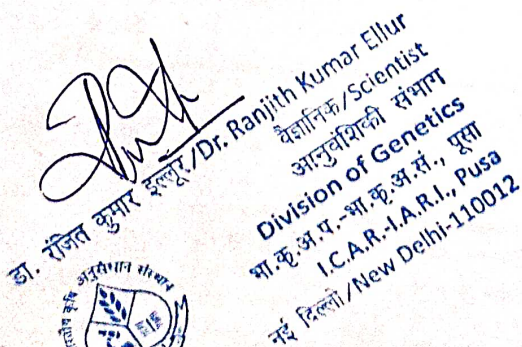 डा. रंजित कुमार इल्लूर/Dr. Ranjith Kumar Ellur
वैज्ञानिक/Scientist
आनुवंशिकी संभाग
Division of Genetics
भा.कृ.अ.प.-भा.कृ.अ.सं., पूसा
I.C.A.R.-I.A.R.I., Pusa
नई दिल्ली/New Delhi-110012
कृषि अनुसंधान संस्थान